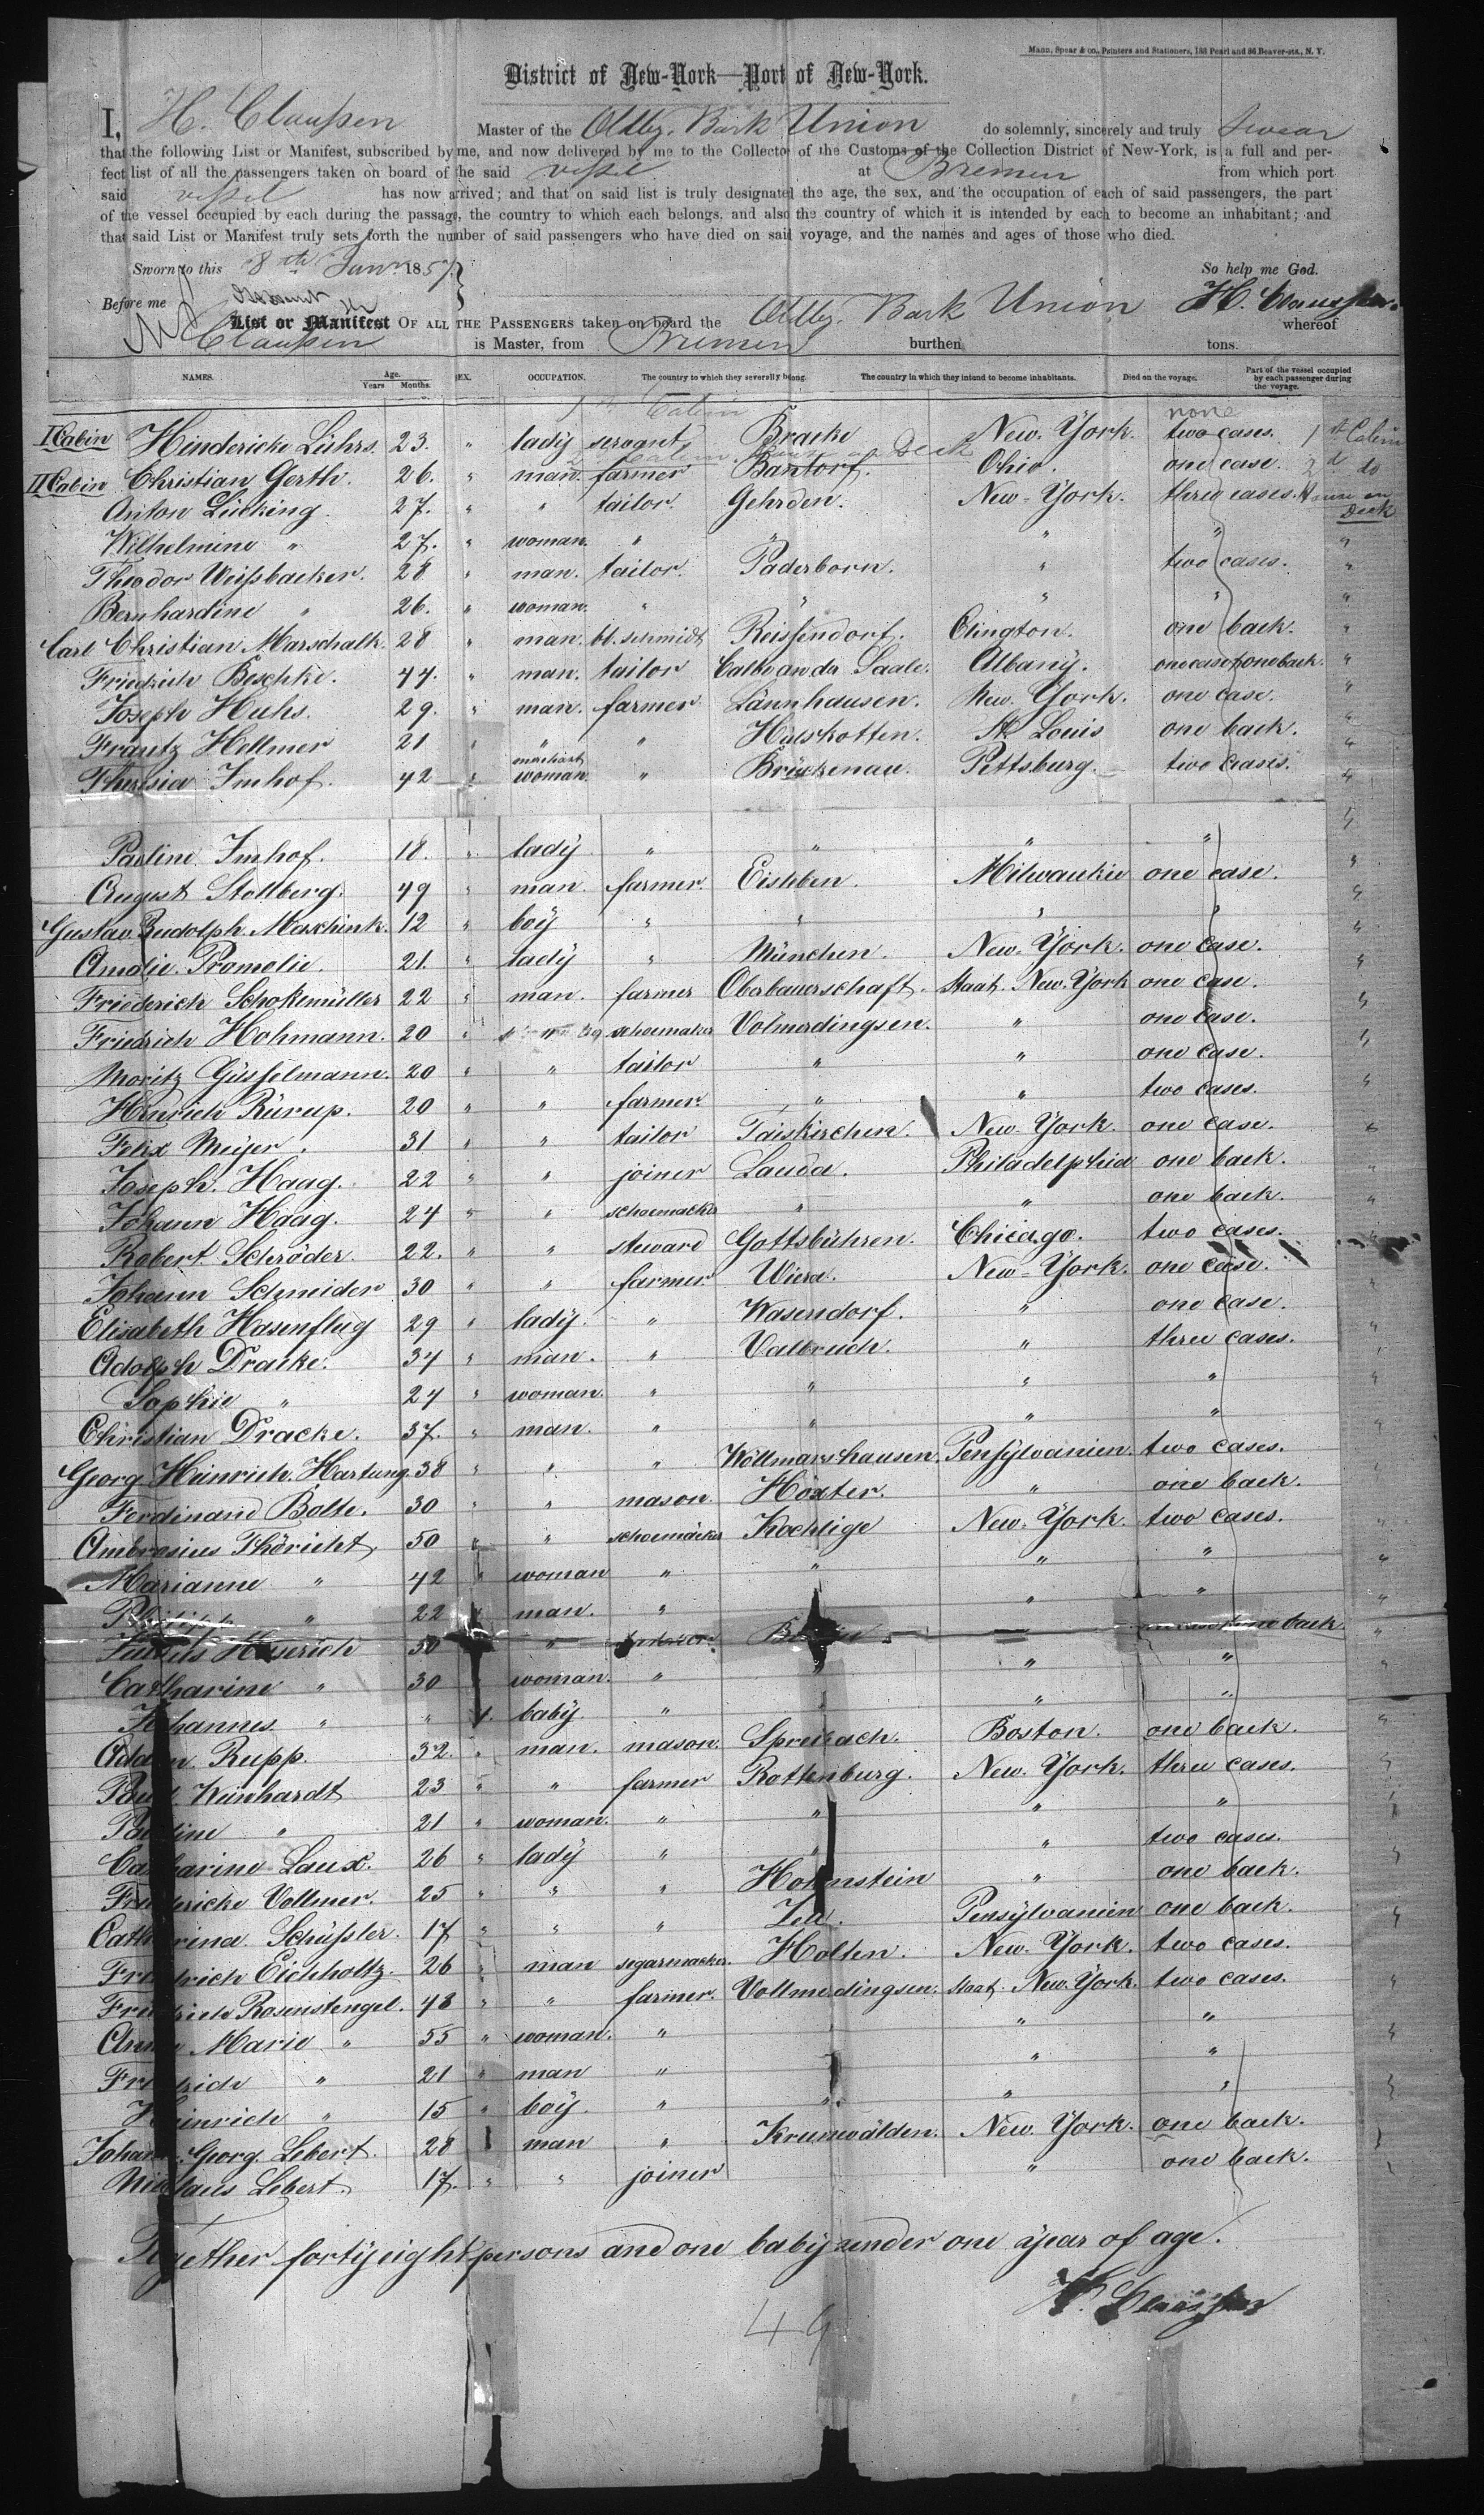 Mann, Spear & Co., Printers and Stationers, 188 Pearl and 86 Beaver-sts., N. Y.
District of New-York—Port of New-York.
I, H. Claussen Master of the Oldbg. Bark Union do solemnly, sincerely and truly swear
that the following List or Manifest, subscribed by me, and now delivered by me to the Collector of the Customs of the Collection District of New-York, is a full and per-
fect list of all the passengers taken on board of the said vessel at Bremen from which port
said vessel has now arrived; and that on said list is truly designated the age, the sex, and the occupation of each of said passengers, the part
of the vessel occupied by each during the passage, the country to which each belongs, and also the country of which it is intended by each to become an inhabitant; and
that said List or Manifest truly sets forth the number of said passengers who have died on said voyage, and the names and ages of those who died.
Sworn to this 8th 1857 So help me God.
Before me H. Claussen
List or Manifest OF ALL THE PASSENGERS taken on board the Oldbg. Bark Union whereof
Claussen is Master, from Bremen burthen tons.
NAMES. Age. Years Months. SEX. OCCUPATION. The country to which they severally belong. The country in which they intend to become inhabitants. Died on the voyage. Part of the vessel occupied by each passenger during the voyage.
1st Cabin none
I Cabin Hindericke Lührs. 23. " lady servant Bracke New-York. two cases. 1st Cabin
II Cabin Christian Gerth. 26. " man. farmer Bantorf. Ohio. one case. 2d do
Anton Lücking. 27. " " tailor. Gehrden. New-York. three cases. House on Deck
Wilhelmine " 27. " woman. " " " " "
Theodor Weissbacker. 28 " man. tailor. Paderborn. " two cases. "
Bernhardine " 26. " woman. " " " " "
Carl Christian Marschalk. 28 " man. bl. schmidt Reissendorf. Elington. one back. "
Friedrich Beschke. 44. " man. tailor Calbe an da Saale. Albany. one case & one back. "
Joseph Huhs. 29. " man. farmer Lännhausen. New York. one case. "
Frantz Hellmer 21 " " " Hulskotten. St. Louis one back. "
Theresia Imhof. 42 " merchant woman. " Brückenau. Pettsburg. two cases. "
Pauline Imhof. 18. " lady " " " " "
August Stollberg. 49 " man. farmer. Eisleben. Milwaukie one case. "
Gustav Rudolph Maschink. 12 " boy " " " " "
Amalie Pramolie. 21. " lady " München. New-York. one case. "
Friederich Schokemüller 22 " man. farmer Oberbauerschaft. Staat. New-York one case. "
Friedrich Hohmann. 20 " " schoemaker Volmerdingsen. " one case. "
Moritz Güsselmann. 20 " " tailor " " one case. "
Heinrich Rürup. 20 " " farmer. " " two cases. "
Felix Meyer. 31 " " tailor Taiskirchen. New-York. one case. "
Joseph. Haag. 22 " " joiner Lauda. Philadelphia one back. "
Johann Haag. 24 " " schoemacker " " one back. "
Robert Schröder. 22. " " steward Gottsbühren. Chicago. two cases.
Johann Schneider 30 " " farmer Wiera. New-York. one case. "
Elisabeth Hasenflug 29 " lady. " Wasendorf. " one case. "
Adolph Dracke. 34 " man. " Valbruch. " three cases. "
Sophie " 24 " woman. " " " " "
Christian Dracke. 37. " man. " " " " "
Georg Heinrich Hartung. 38 " " " Wöllmarshausen. Pensylvanien. two cases. "
Ferdinand Bolte. 30 " " mason. Höxter. " one back.
Ambrosius Thöricht 50 " " schoemäcker Kochlige New-York. two cases. "
Marianne " 42 " woman " " " " "
Philipp " 22 " man. " " " "
30 " " " one back. "
Catharine " 30 " woman. " " " " "
Johannes " " 1. baby " " " "
Adam Rupp. 32. " man. mason. Spreibach. Boston. one back. "
Paul. Weinhardt 23 " " farmer Rottenburg. New-York. three cases. "
Pauline " 21 " woman. " " " "
Catharine Laux. 26 " lady " " " two cases. "
Friedericke Vollmer. 25 " " " Hohnstein " one back.
Catharina Schüssler. 17 " " " Zell. Pensylvanien one back. "
Friedrich Eichholtz. 26 " man segarmacker. Holten. New-York. two cases.
Friedrich Rosenstengel. 48 " " farmer. Vollmerdingsen. Staat. New-York. two cases. "
Anna Marie " 55 " woman. " " " "
Friedrich " 21 " man " " " "
Heinrich " 15 " boy. " " " " "
Johann. Georg. Lebert. 28 " man " Krumwälden. New-York. one back.
Nicolaus Lebert. 17. " " joiner " one back.
Together forty eight persons and one baby under one year of age.
H. Claussen
49